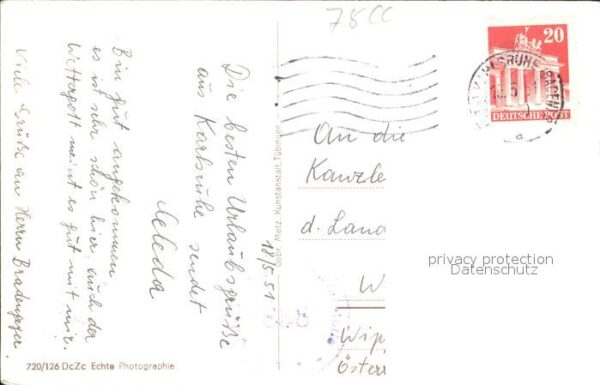 78CC
Die besten Urlaubsgrüße
aus Karlsruhe sendet
Bin gut angekommen
es ist sehr schön hier, auch der
Wettergott meint es gut mit mir.
Viele Grüße an Herrn
18/5 51
Gebr. Metz, Kunstanstalt, Tübingen
720/126 DcZc Echte Photographie
20
DEUTSCHE POST
KARLSRUHE (BADEN)
An die
Kanzle
d. Lan
W
Wip
Österr
privacy protection
Datenschutz